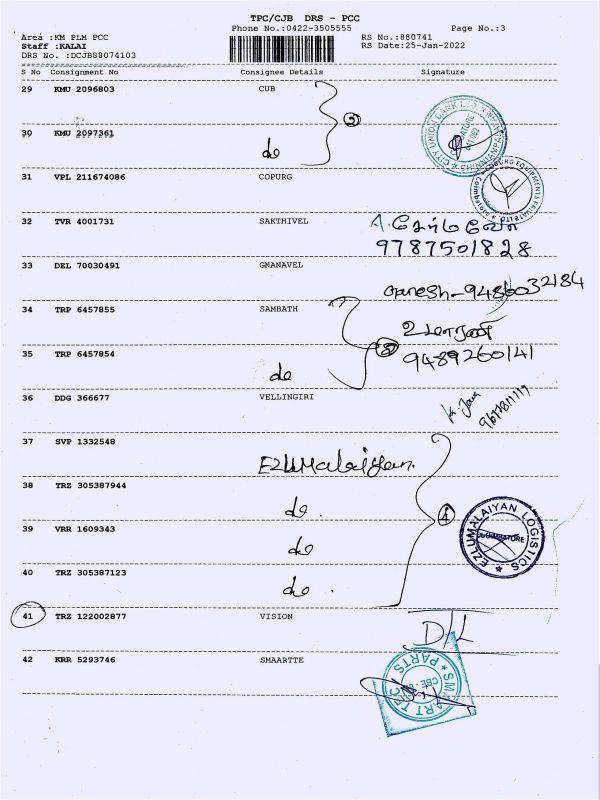 TPC/CJB DRS - PCC
Phone No.:0422-3505555
Page No.:3
Area :KM PLM PCC
RS No.:880741
Staff :KALAI
RS Date:25-Jan-2022
DRS No. :DCJB88074103
S No Consignment No Consignee Details Signature
29 KMU 2096803 CUB
30 KMU 2097361 do
31 VPL 211674086 COPURG
32 TVR 4001731 SAKTHIVEL
9787501828
33 DEL 70030491 GNANAVEL
Ganesh-9486032184
34 TRP 6457855 SAMBATH
35 TRP 6457854 do
9489260141
36 DDG 366677 VELLINGIRI
37 SVP 1332548 Ezlumalaiyan.
38 TRZ 305387944 do.
39 VRR 1609343 do
40 TRZ 305387123 do.
4
EZLUMALAIYAN LOGISTICS
COIMBATORE
41 TRZ 122002877 VISION D/L
42 KRR 5293746 SMAARTTE